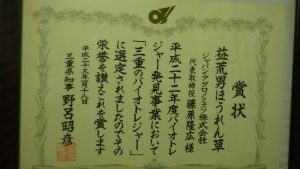 賞状
益荒男ほうれん草
ジャパンアグロノミスツ株式会社
代表取締役 藤原隆広 様
平成二十二年度バイオトレ
ジャー発見事業において
「三重のバイオトレジャー」
に選定されましたのでその
栄誉を讃えこれを賞します
平成二十三年二月十八日
三重県知事 野呂昭彦